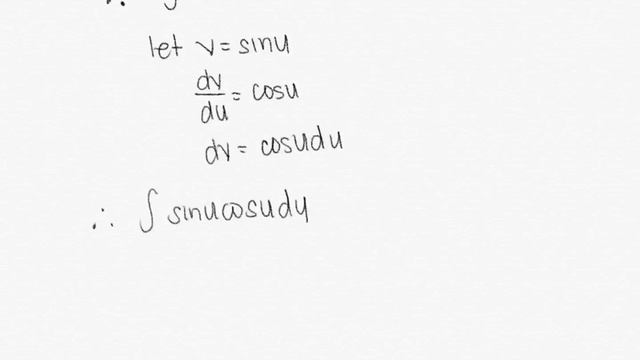 let v = sinu
dv/du = cosu
dv = cosudu
∴ ∫ sinucosudu